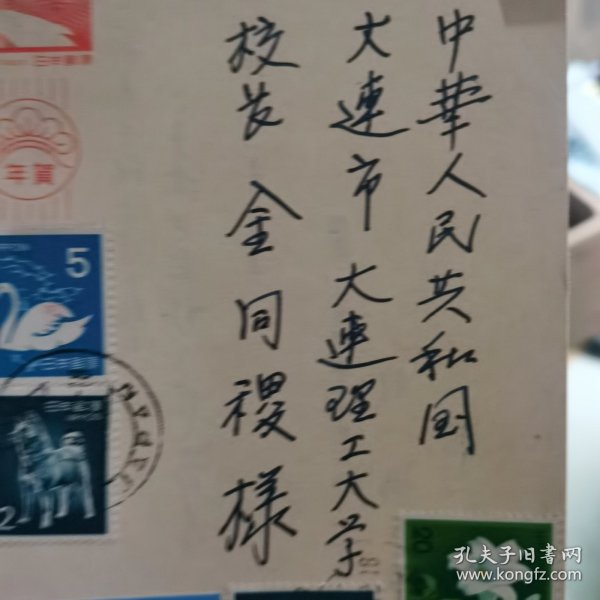 中華人民共和国
大連市 大連理工大学
校长 金同稷様
年賀
日本郵便
5
日本郵便
日本郵便
2
20
孔夫子旧书网
www.kongfz.com